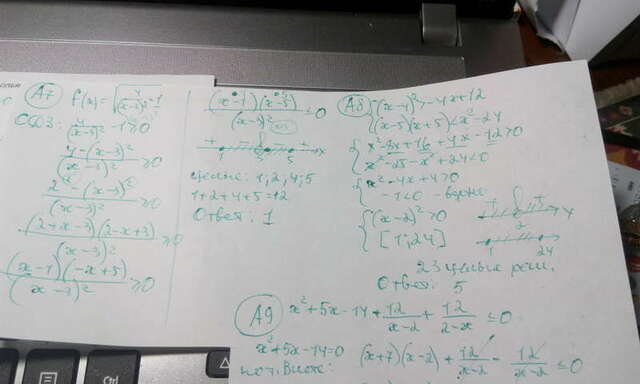 A7 f(x) = √(4/(x-3)² - 1)
ООЗ: 4/(x-3)² - 1 ≥ 0
(4-(x-3)²)/(x-3)² ≥ 0
(2² - (x-3)²)/(x-3)² ≥ 0
((2+x-3)(2-x+3))/(x-3)² ≥ 0
((x-1)(-x+5))/(x-3)² ≥ 0
((x-1)(x-5))/(x-3)² ≤ 0
+ - - + x
1 3 5
целые: 1; 2; 4; 5
1+2+4+5=12
Ответ: 1
A8 (x-4)² > -4x+12
(x-5)(x+5) < x²-24
x²-8x+16+4x-12>0
x²-25-x²+24<0
x²-4x+4>0
-1<0 - верно
(x-2)² > 0
[1; 24]
+ + x
2
1 24
23 целых реш.
Ответ: 5
A9 x²+5x-14+12/(x-2)+12/(2-x) ≤ 0
x²+5x-14=0 (x+7)(x-2)+12/(x-2)-12/(x-2) ≤ 0